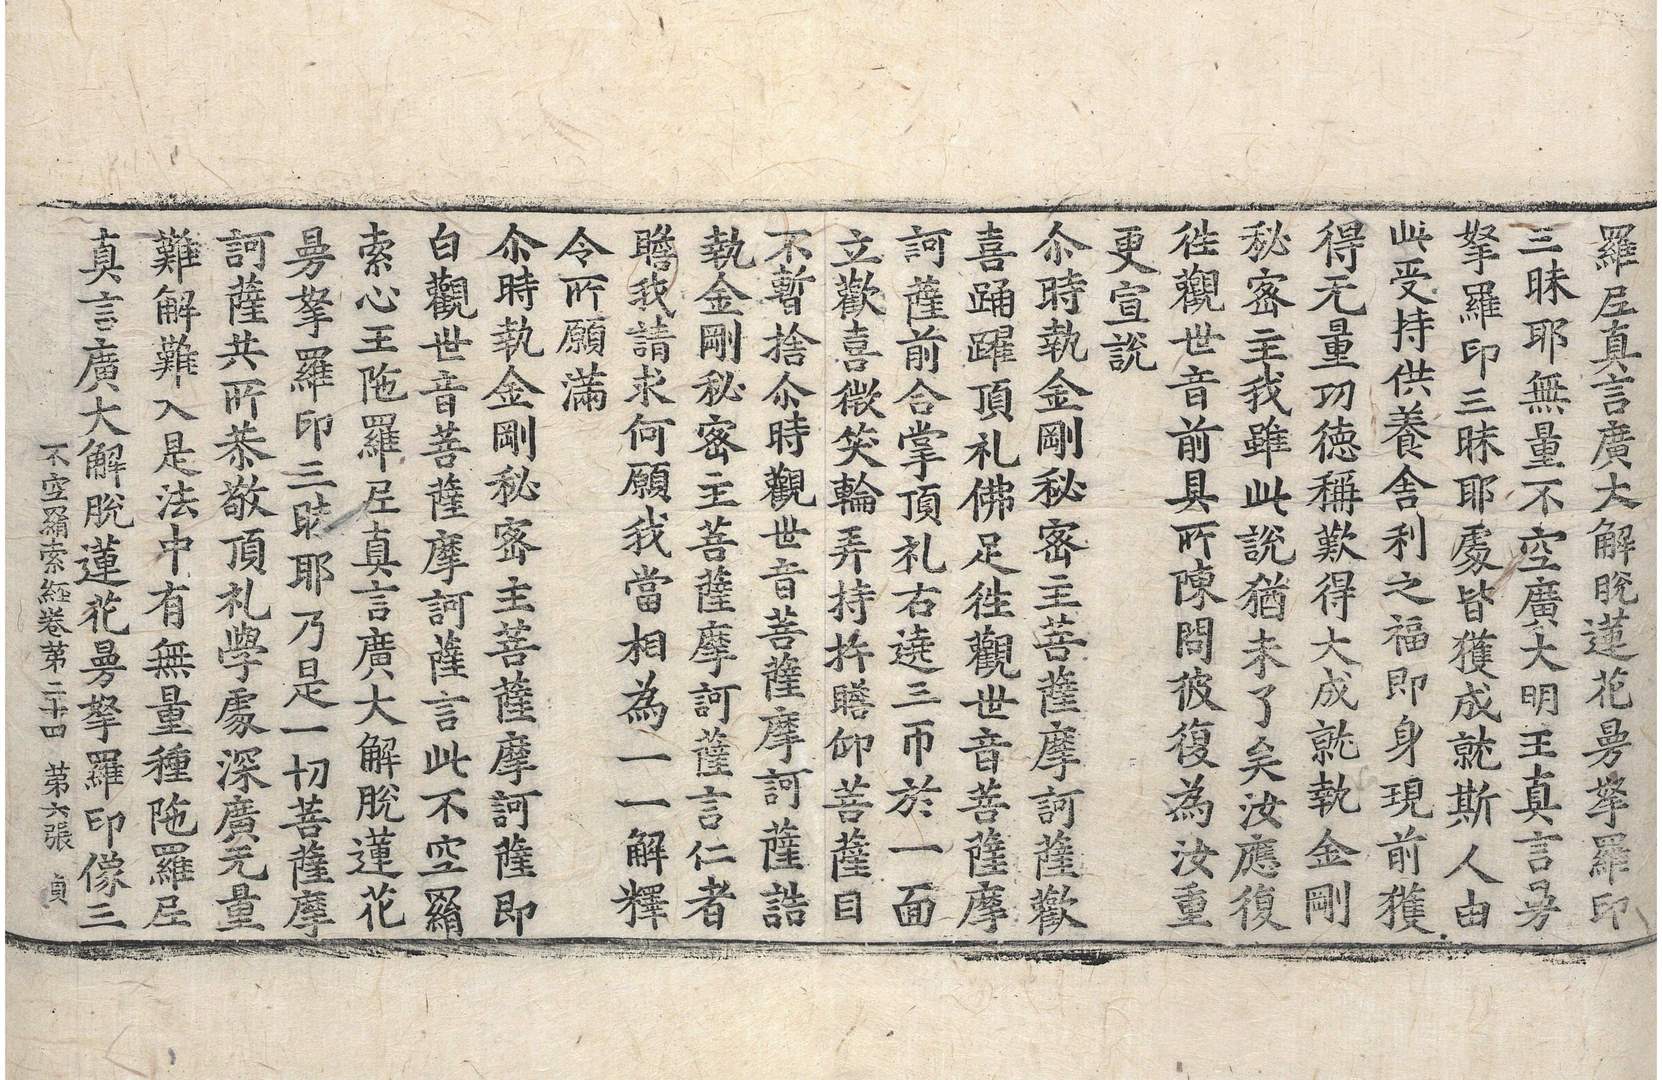 羅尼真言廣大解脫蓮花曼拏羅印
三昧耶無量不空廣大明王真言曼
拏羅印三昧耶處皆獲成就斯人由
此受持供養舍利之福即身現前獲
得无量功德稱歎得大成就執金剛
秘密主我雖此說猶未了矣汝應復
徃觀世音前具所陳問彼復為汝重
更宣說
尒時執金剛秘密主菩薩摩訶薩歡
喜踊躍頂礼佛足徃觀世音菩薩摩
訶薩前合掌頂礼右遶三帀於一面
立歡喜微笑輪弄持杵瞻仰菩薩目
不暫捨尒時觀世音菩薩摩訶薩誥
執金剛秘密主菩薩摩訶薩言仁者
瞻我請求何願我當相為一一解釋
令所願滿
尒時執金剛秘密主菩薩摩訶薩即
白觀世音菩薩摩訶薩言此不空羂
索心王陁羅尼真言廣大解脫蓮花
曼拏羅印三昧耶乃是一切菩薩摩
訶薩共所恭敬頂礼學處深廣无量
難解難入是法中有無量種陁羅尼
真言廣大解脫蓮花曼拏羅印像三
不空羂索經卷第二十四 第六張 貞